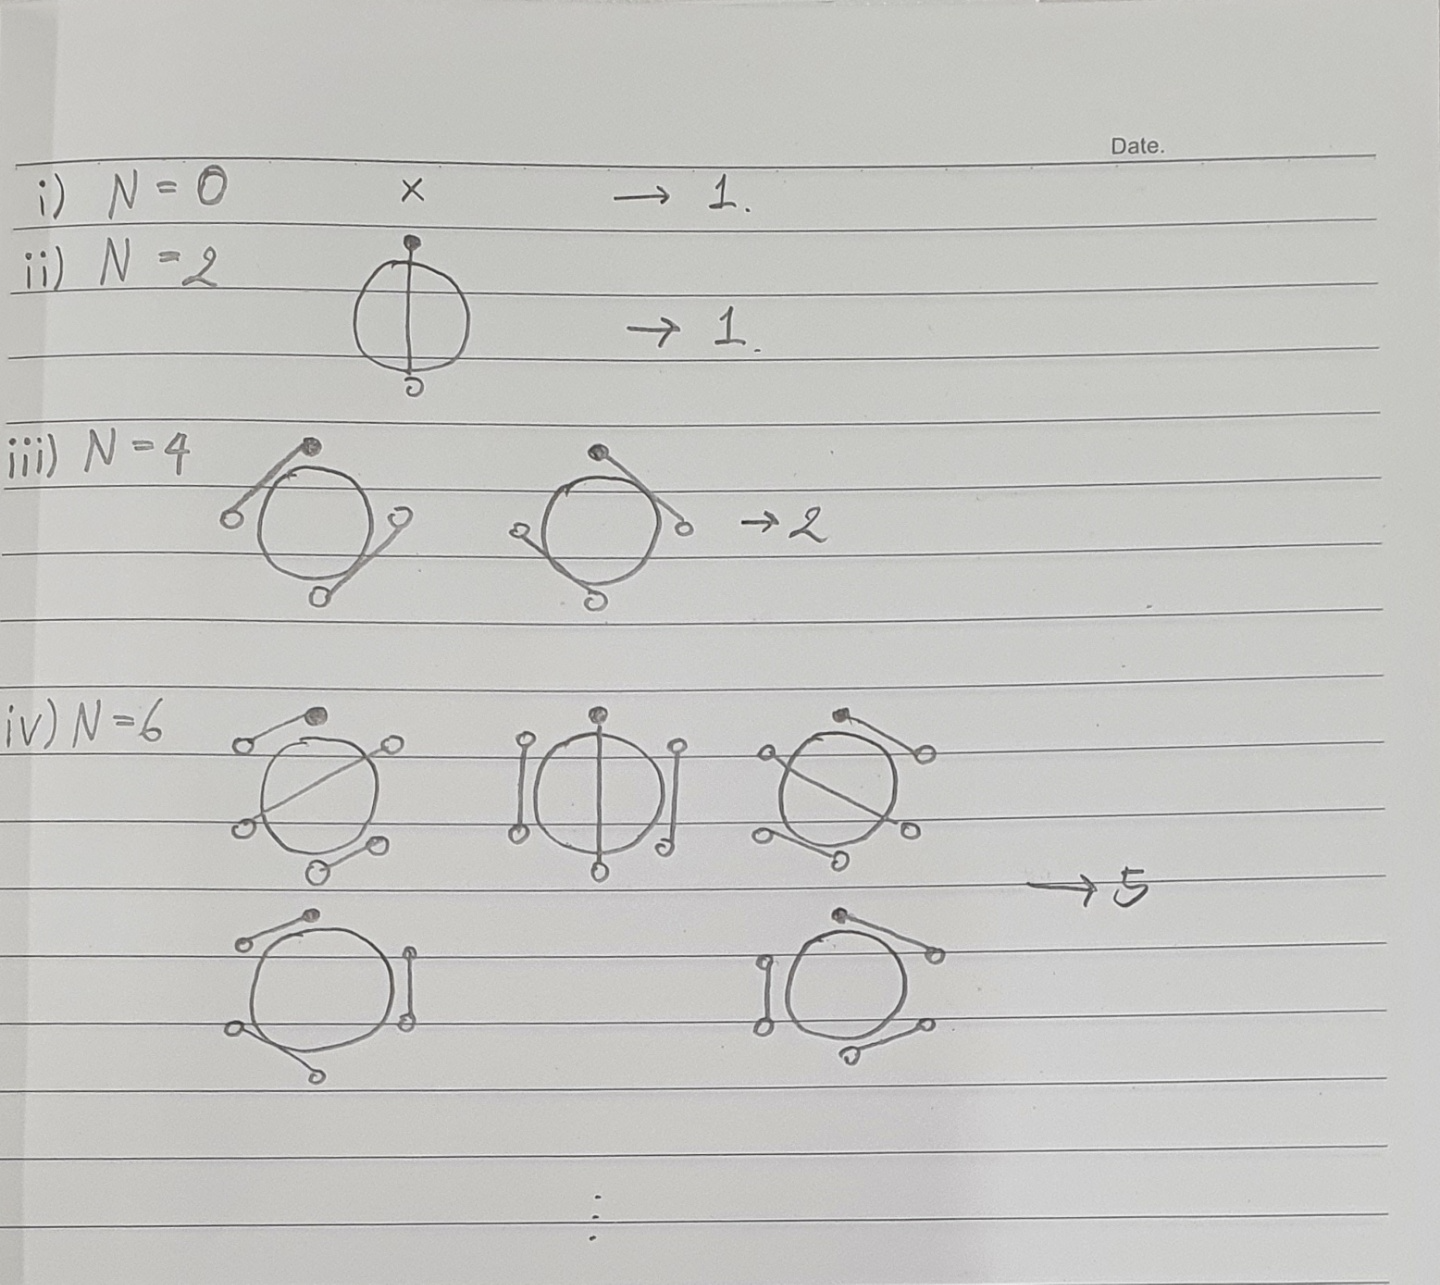 Date.
i) N = 0 × → 1.
ii) N = 2
→ 1.
iii) N = 4 → 2
iv) N = 6
→ 5
⋮